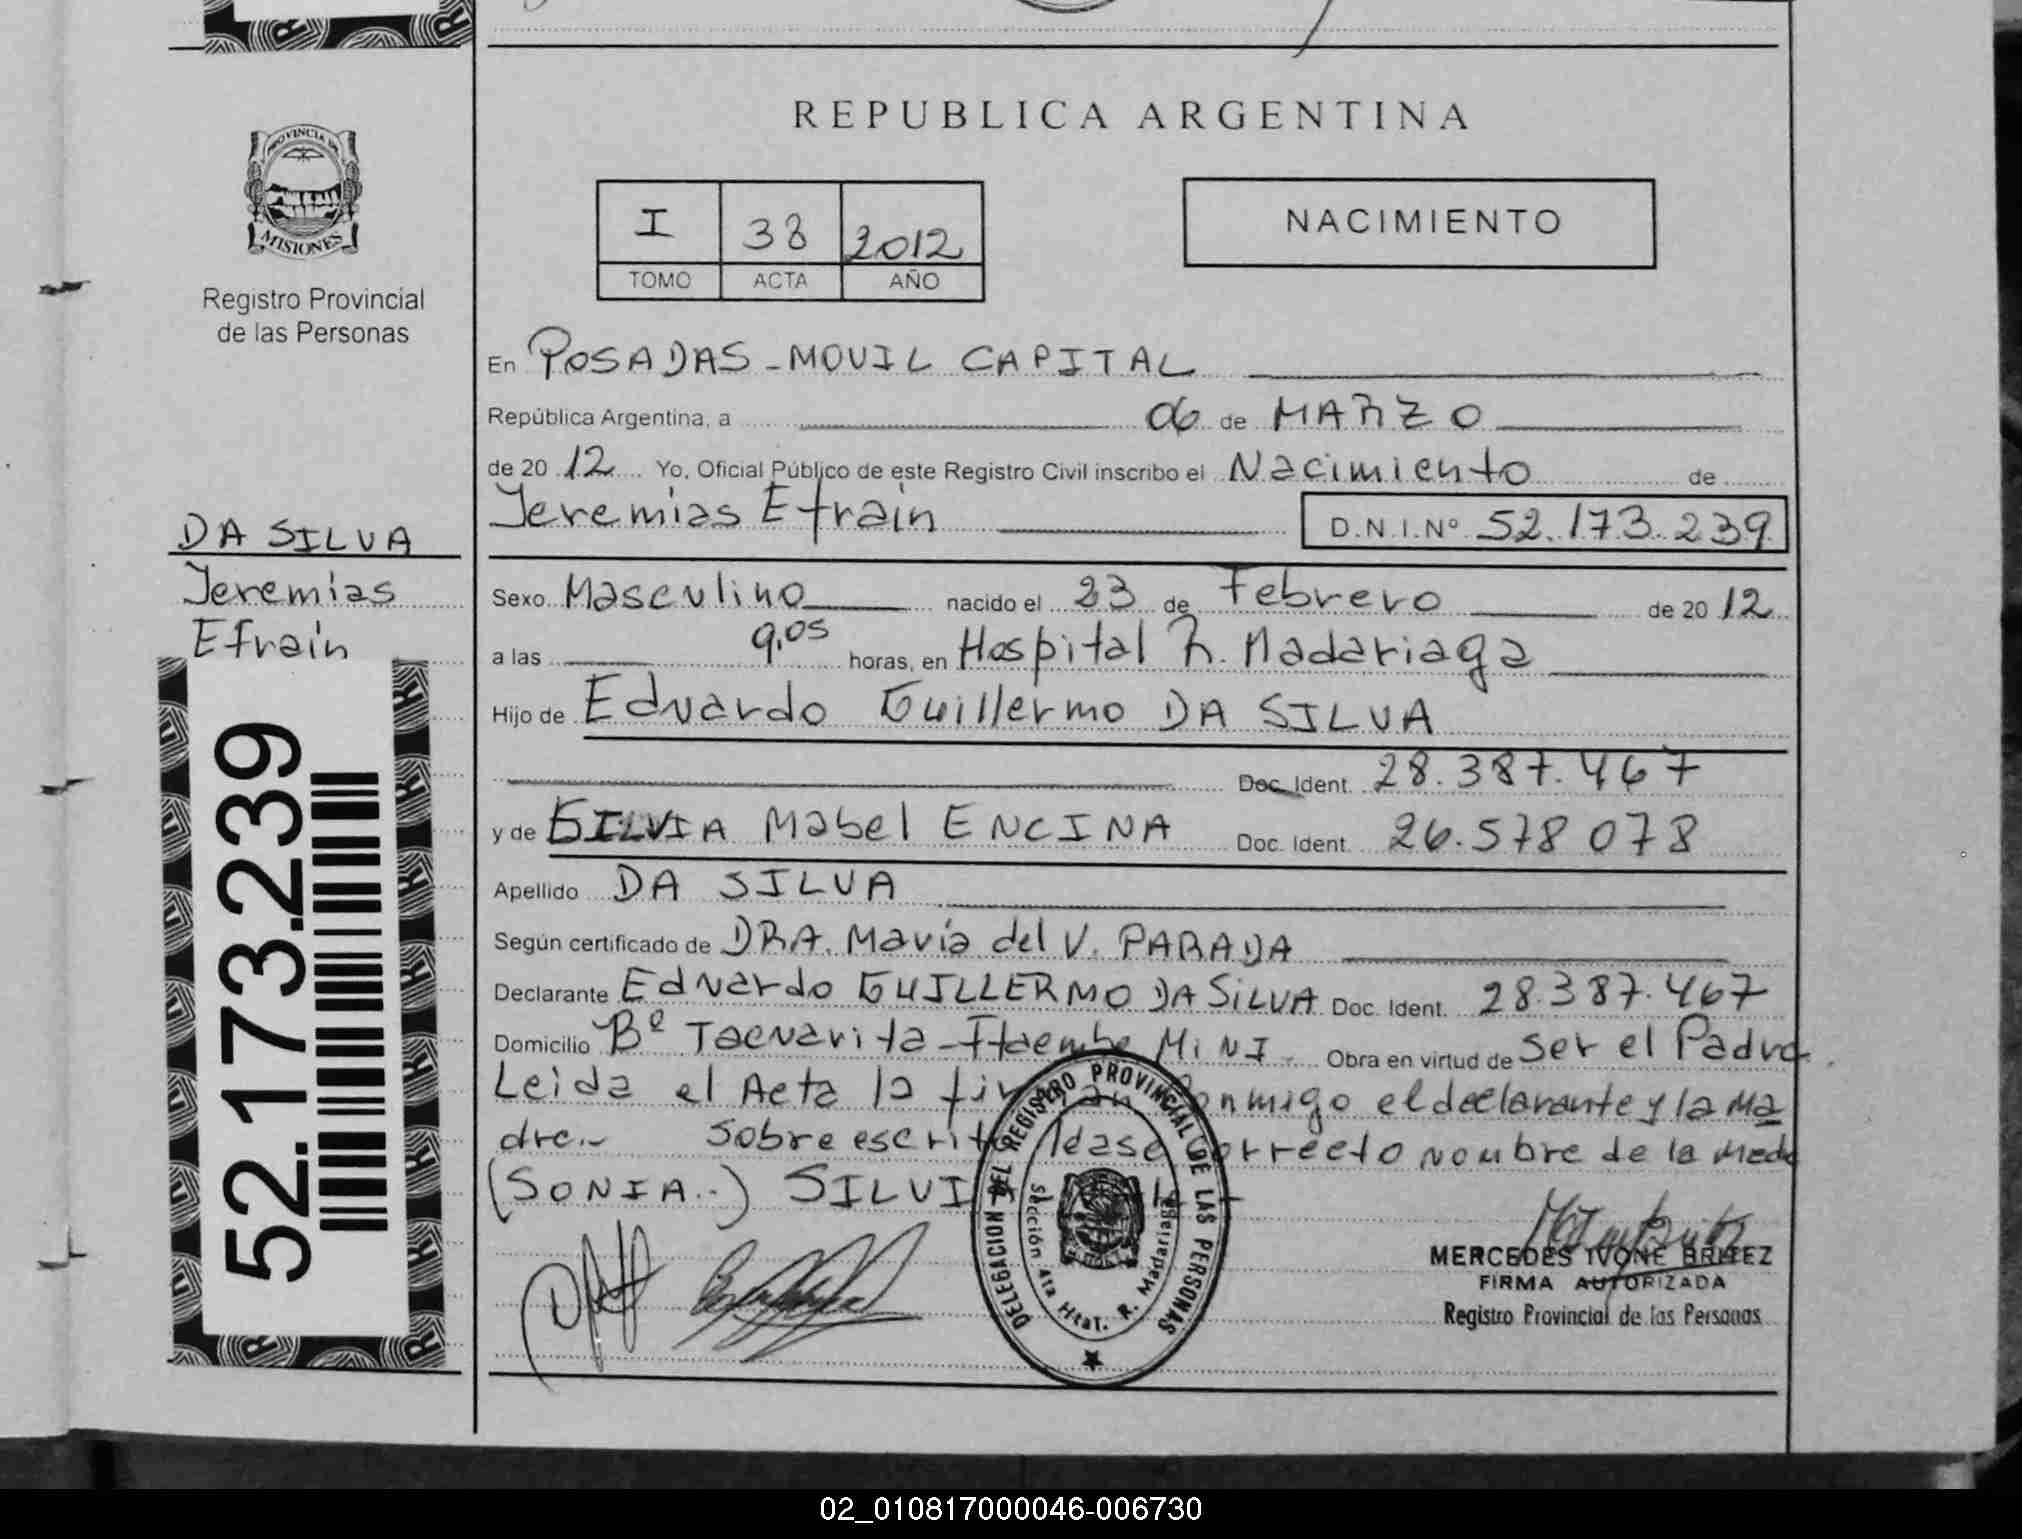 REPUBLICA ARGENTINA
PROVINCIA DE
MISIONES
Registro Provincial
de las Personas
I 38 2012
TOMO ACTA AÑO
NACIMIENTO
En POSADAS - MOVIL CAPITAL
República Argentina, a 06 de MARZO
de 20 12 Yo, Oficial Público de este Registro Civil inscribo el Nacimiento de
Jeremias Efraín D.N.I.Nº 52.173.239
DA SILVA
Jeremias
Efraín
52.173.239
Sexo Masculino nacido el 23 de Febrero de 20 12
a las 9,05 horas, en Hospital R. Madariaga
Hijo de Eduardo Guillermo DA SILVA
Doc. Ident. 28.387.467
y de SILVIA Mabel ENCINA Doc. Ident. 26.578 078
Apellido DA SILVA
Según certificado de DRA. María del V. PARADA
Declarante Eduardo GUILLERMO DA SILVA Doc. Ident. 28.387.467
Domicilio Bº Tacuarita - Itaembe MINI Obra en virtud de Ser el Padre
Leida el Acta la firman conmigo el declarante y la Ma
dre.- Sobre escrito lease correcto nombre de la Madre
(SONIA..) SILVIA
DELEGACION DEL REGISTRO PROVINCIAL DE LAS PERSONAS
Sección 4ta Htal. R. Madariaga
MERCEDES IVONE BRITEZ
FIRMA AUTORIZADA
Registro Provincial de las Personas
02_010817000046-006730